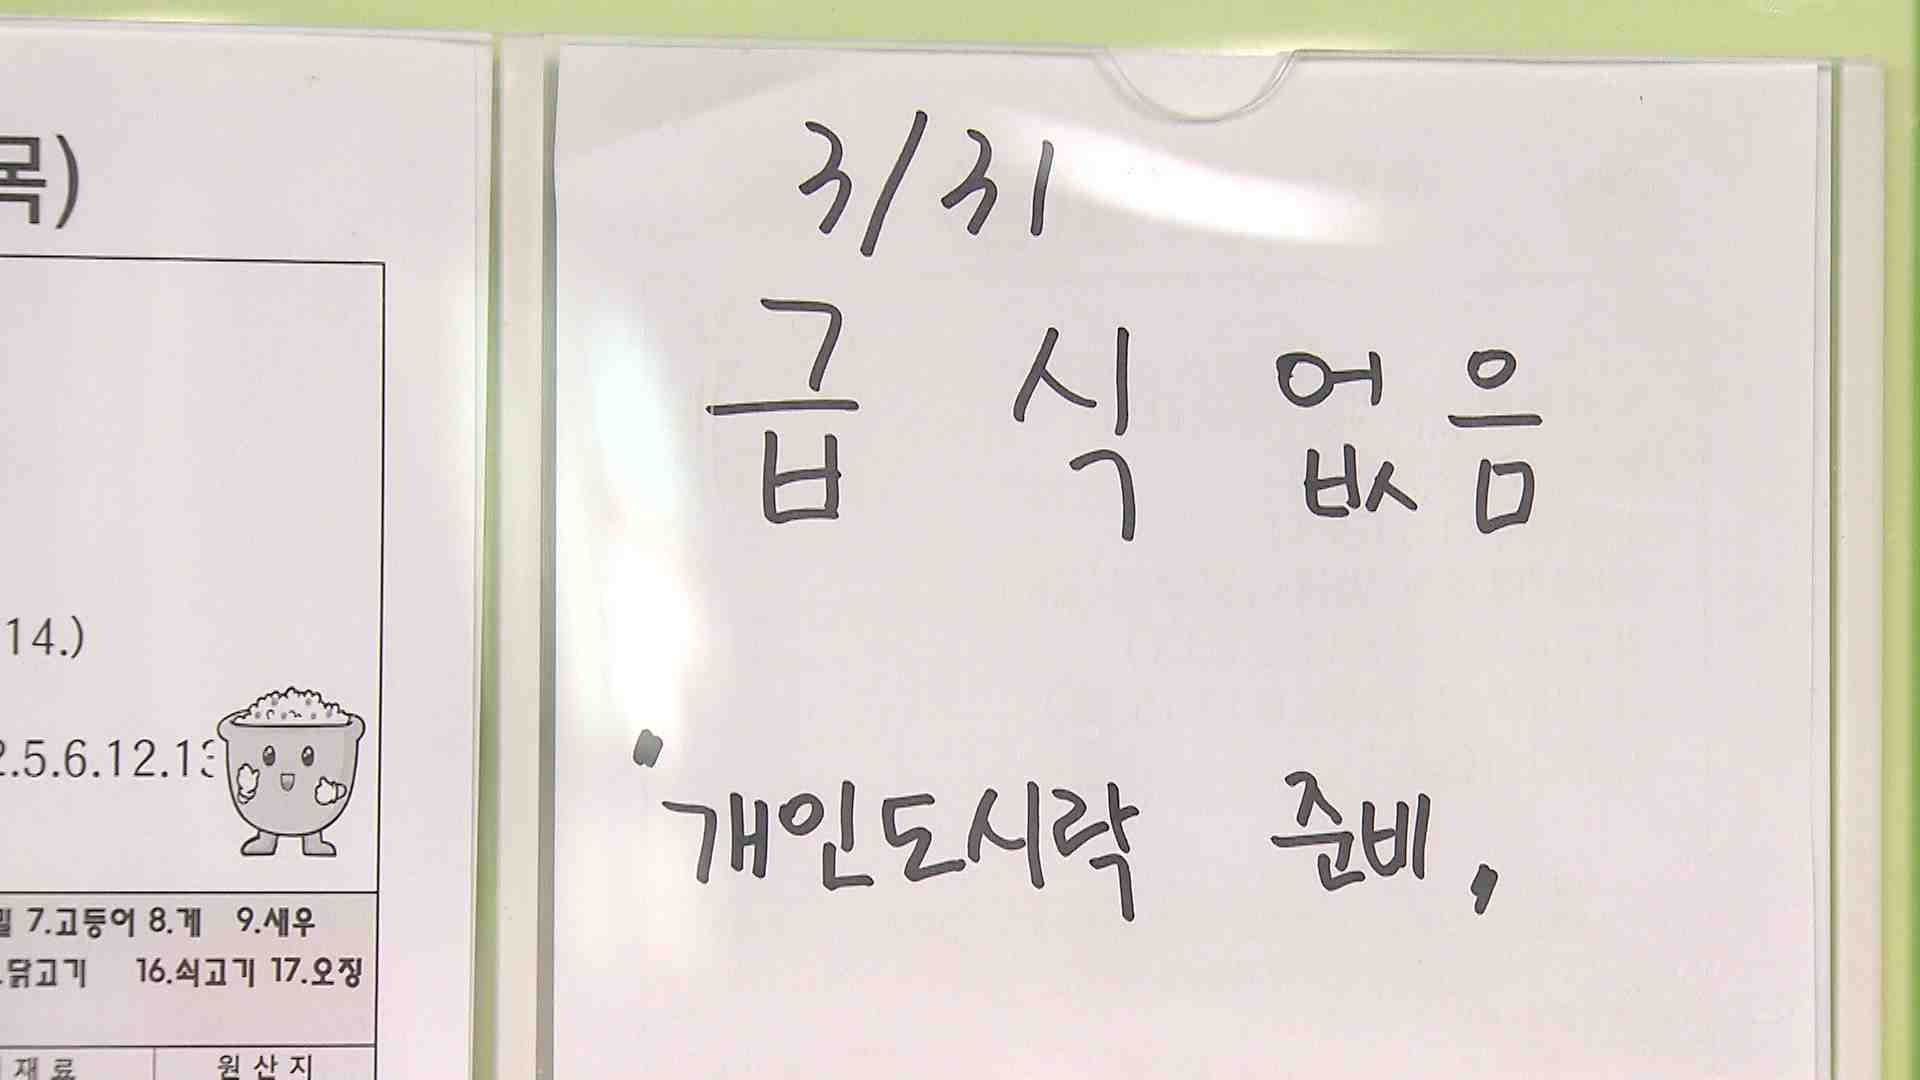 목)
14.)
2.5.6.12.13
7.고등어 8.게 9.새우
닭고기 16.쇠고기 17.오징
재료 원산지
3/31
급 식 없음
"개인도시락 준비,